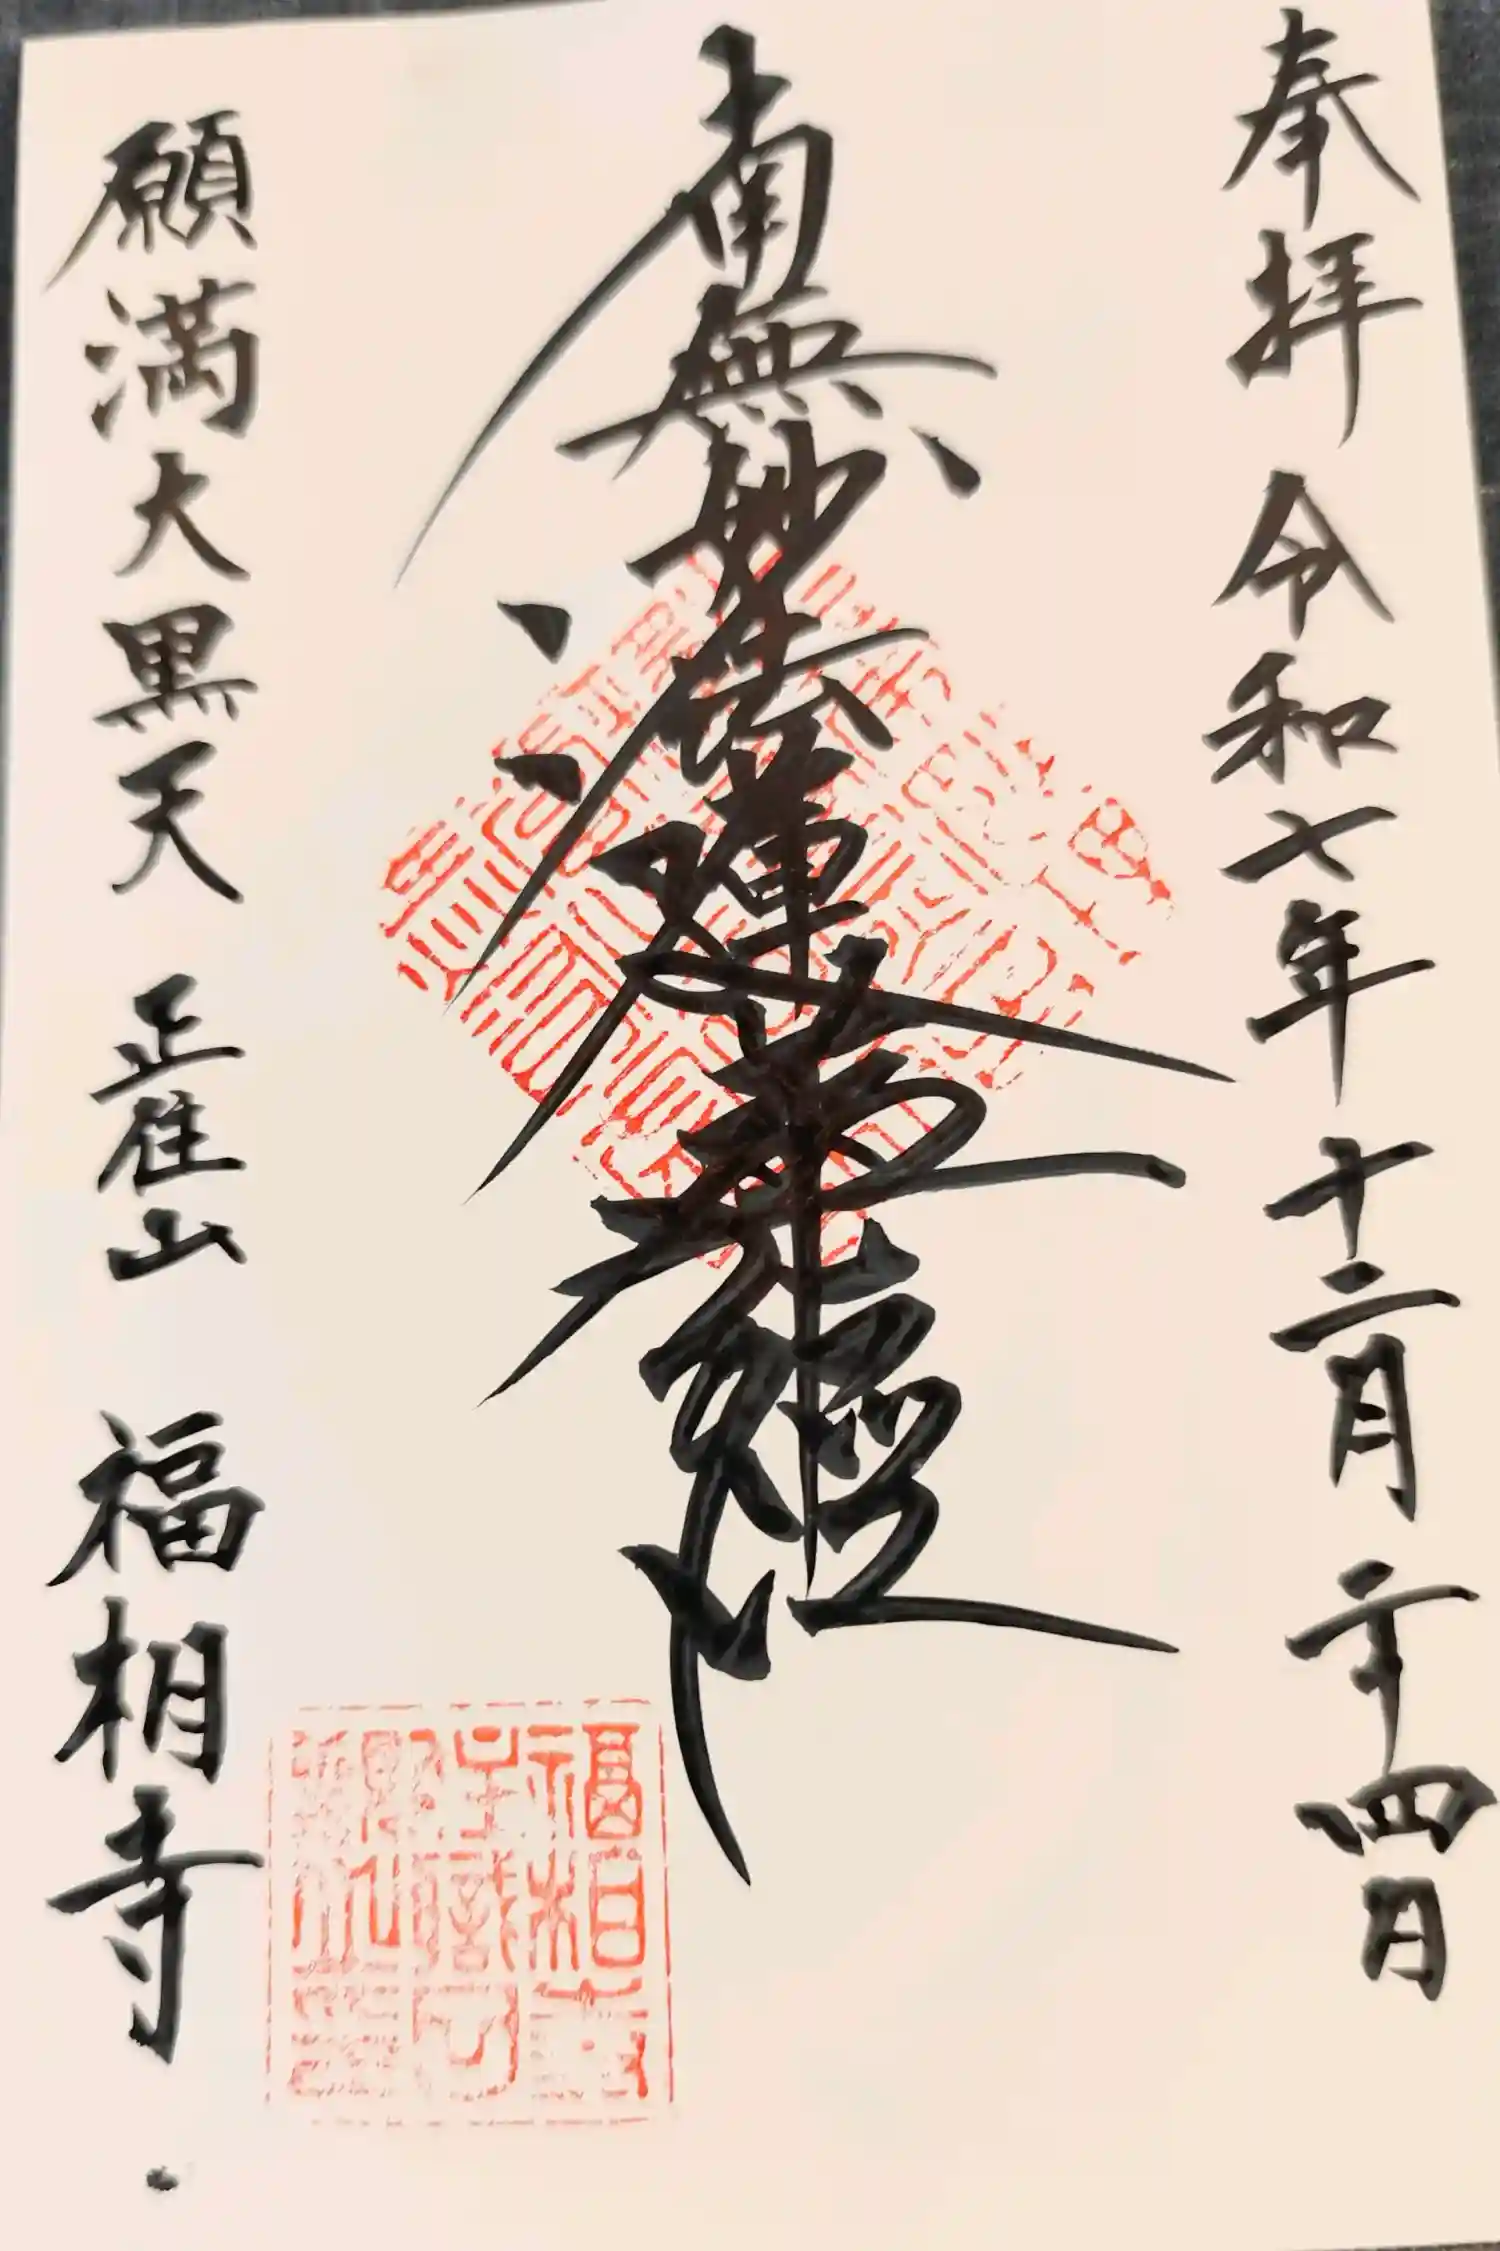 奉拝 令和七年 十二月 二十四日
南無妙法蓮華経
願満大黒天 正住山 福相寺
福相寺